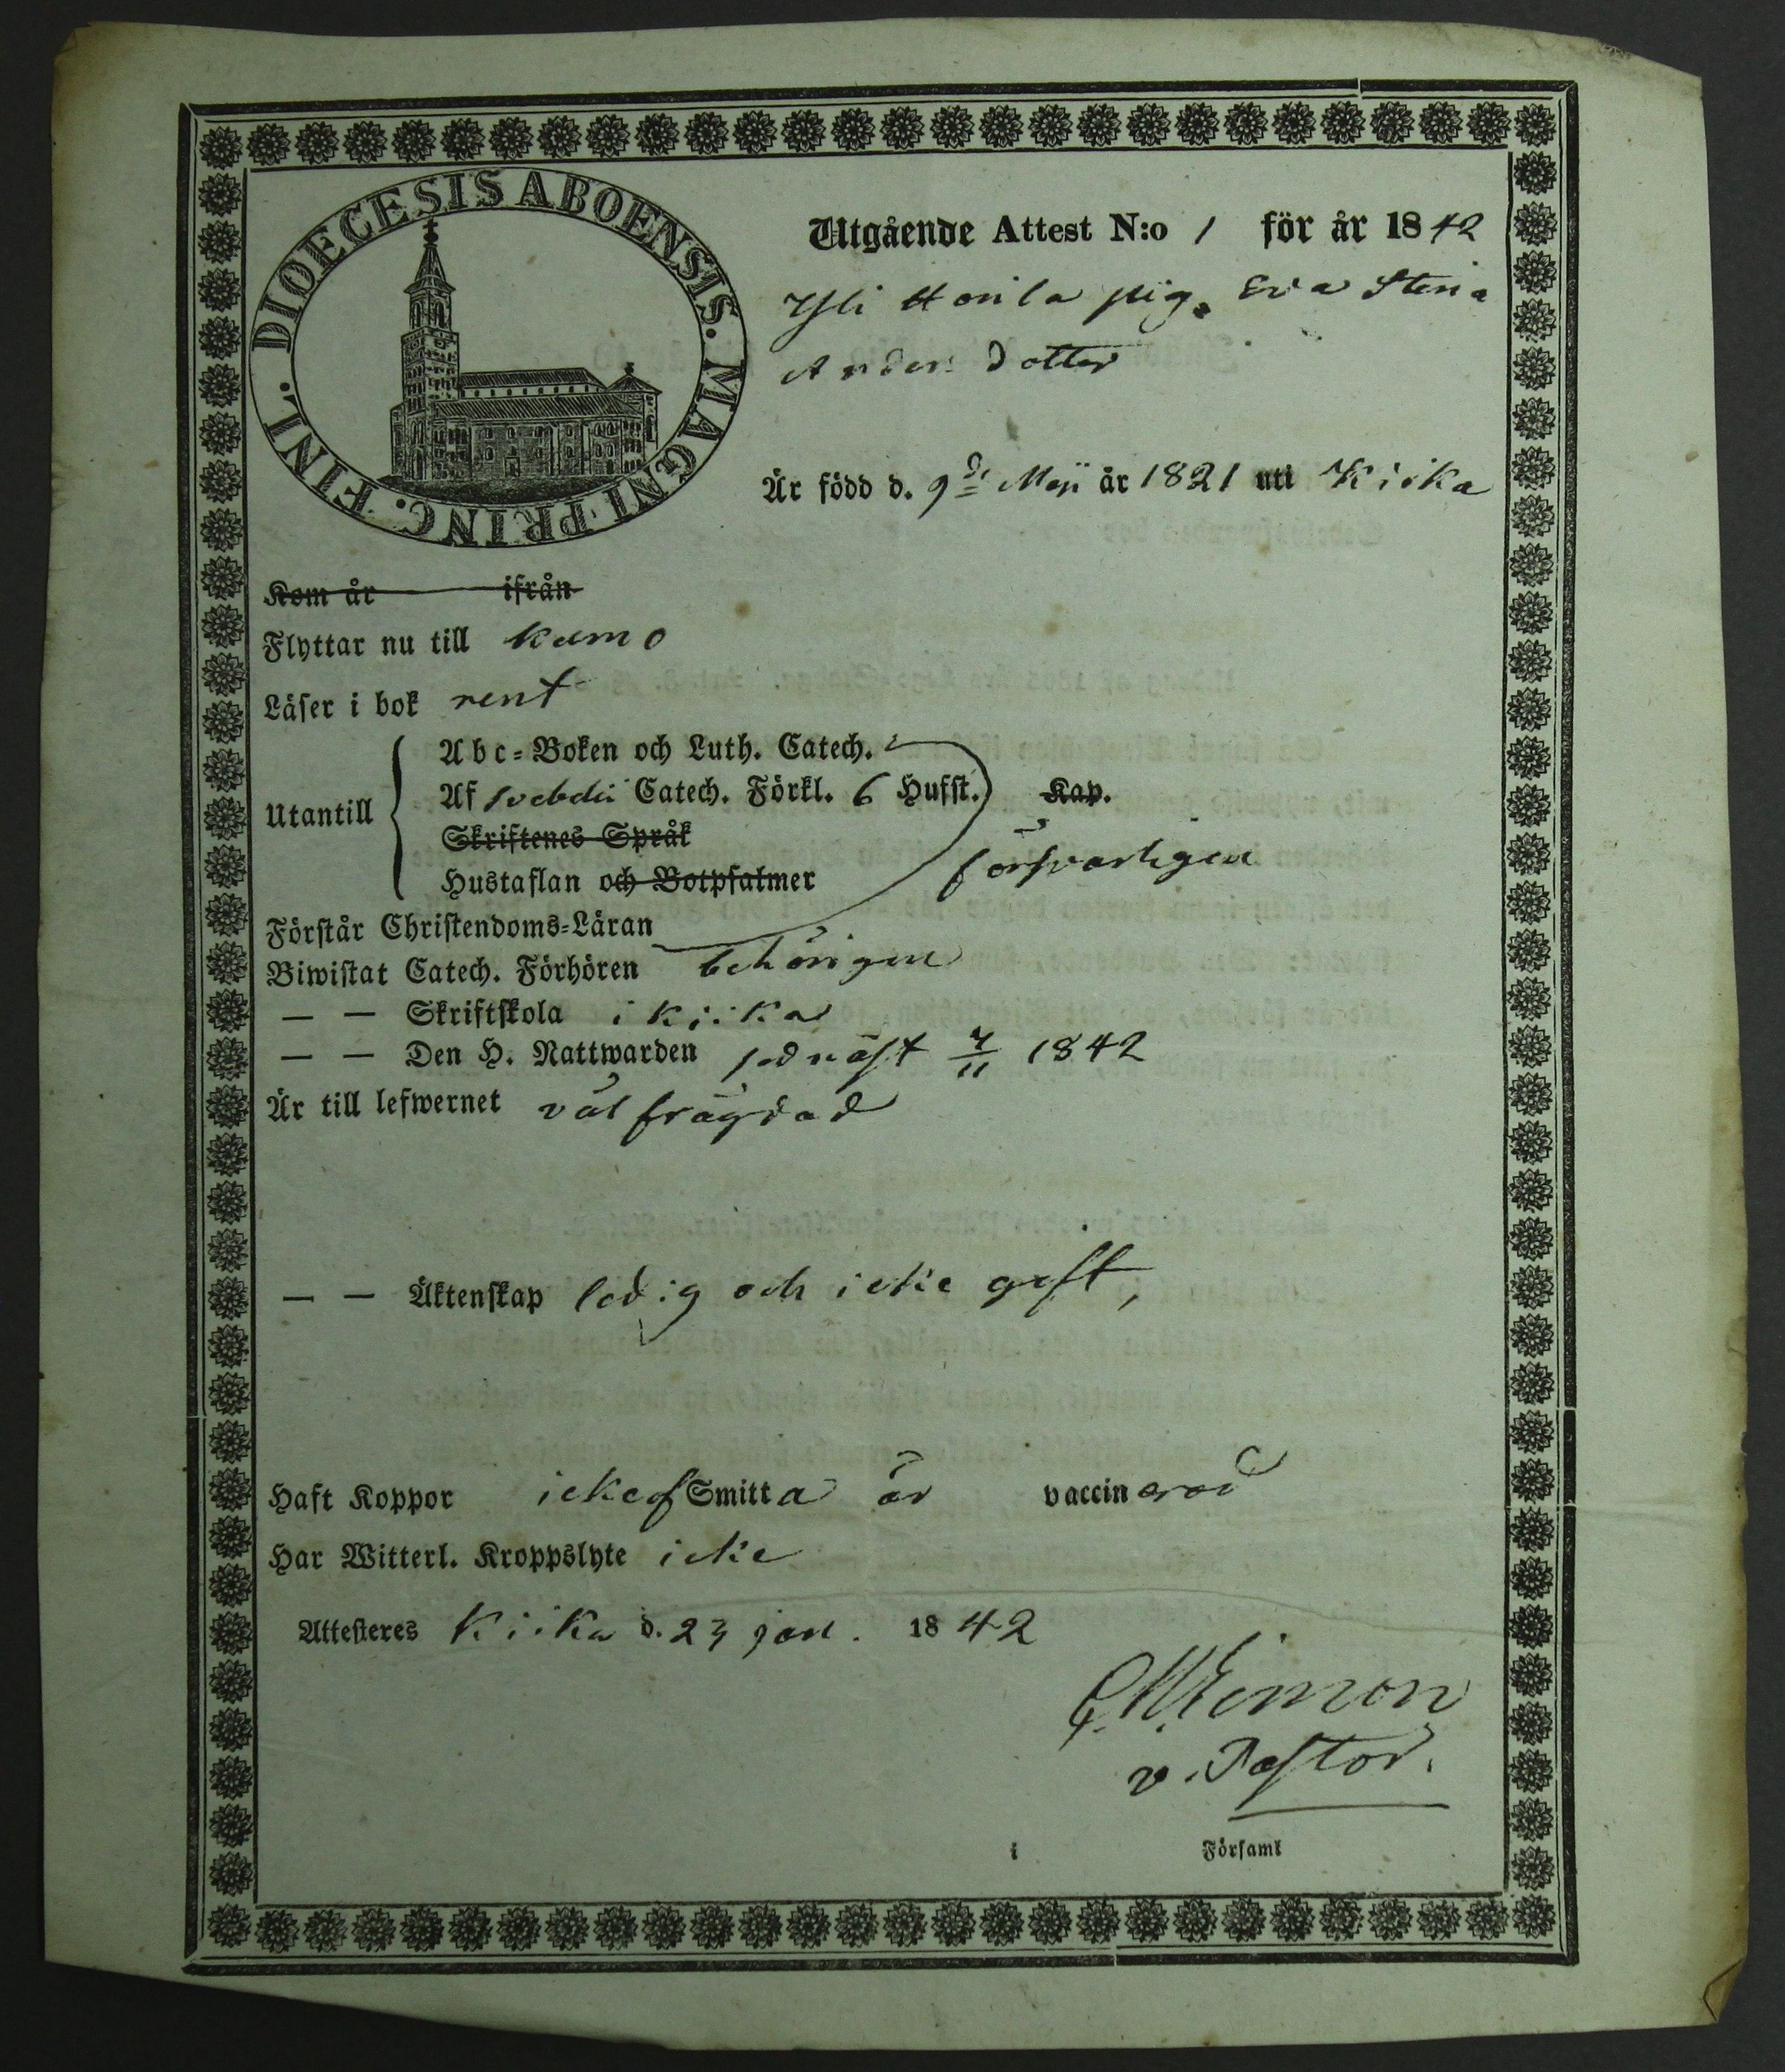 DIOECESIS ABOENSIS. MAGNI PRINC. FINL.
Utgående Attest N:o 1 för år 1842
Yli Honila pig. Eva Stina
Anders dotter
Är född d. 9de Maji år 1821 uti Kiika
Kom år ifrån
Flyttar nu till Kumo
Läser i bok rent
Utantill
Abc-Boken och Luth. Catech.
Af svebelii Catech. Förkl. 6 Hufst. Kap.
Skriftenes Språk
Hustaflan och Botpsalmer försvarligen
Förstår Christendoms-Läran
Biwistat Catech. Förhören behörigen
— — Skriftskola i Kiika
— — Den H. Nattwarden sednast 7/11 1842
Är till lefwernet väl frägdad
— — Äktenskap ledig och icke gift,
Haft Koppor icke Smitta är vaccinerad
Har Witterl. Kroppslyte icke
Attesteres Kiika d. 23 jan. 1842
v. Pastor.
i Församl